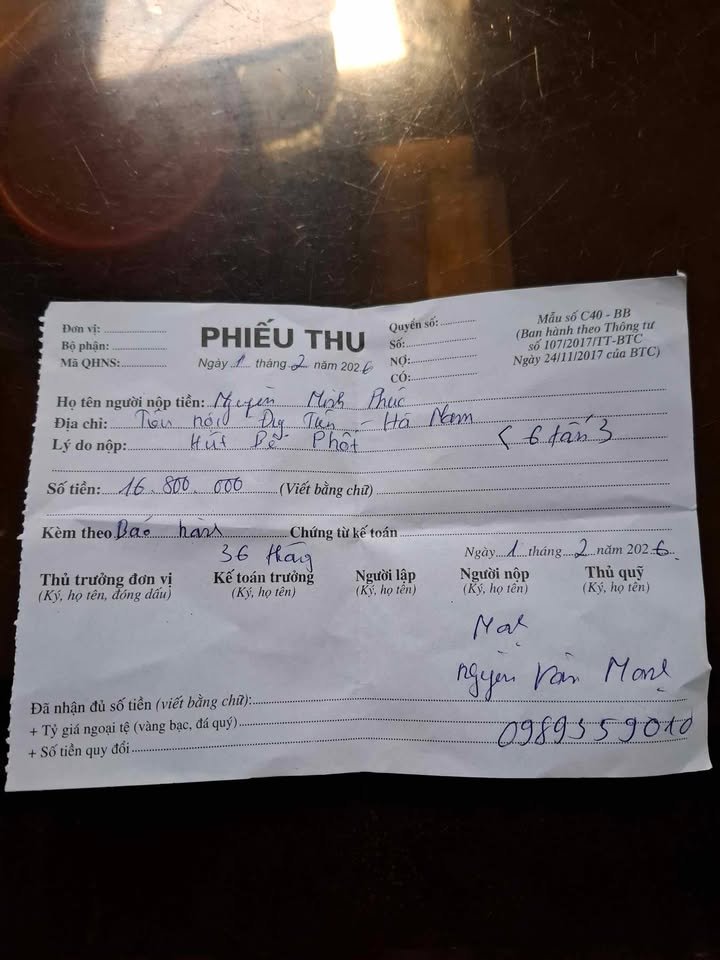 Đơn vị:
Bộ phận:
Mã QHNS:
PHIẾU THU
Ngày 1 tháng 2 năm 2026
Quyển số:
Số:
NỢ:
CÓ:
Mẫu số C40 - BB
(Ban hành theo Thông tư
số 107/2017/TT-BTC
Ngày 24/11/2017 của BTC)
Họ tên người nộp tiền: Nguyễn Minh Phúc
Địa chỉ: Tiên nội - Duy Tiên - Hà Nam
Lý do nộp: Hút Bể Phốt < 6 tấn >
Số tiền: 16.800.000 (Viết bằng chữ)
Kèm theo Bảo hành Chứng từ kế toán
36 tháng
Ngày 1 tháng 2 năm 2026
Thủ trưởng đơn vị Kế toán trưởng Người lập Người nộp Thủ quỹ
(Ký, họ tên, đóng dấu) (Ký, họ tên) (Ký, họ tên) (Ký, họ tên) (Ký, họ tên)
Mạnh
nguyễn văn Mạnh
Đã nhận đủ số tiền (viết bằng chữ):
+ Tỷ giá ngoại tệ (vàng bạc, đá quý)
0989359010
+ Số tiền quy đổi